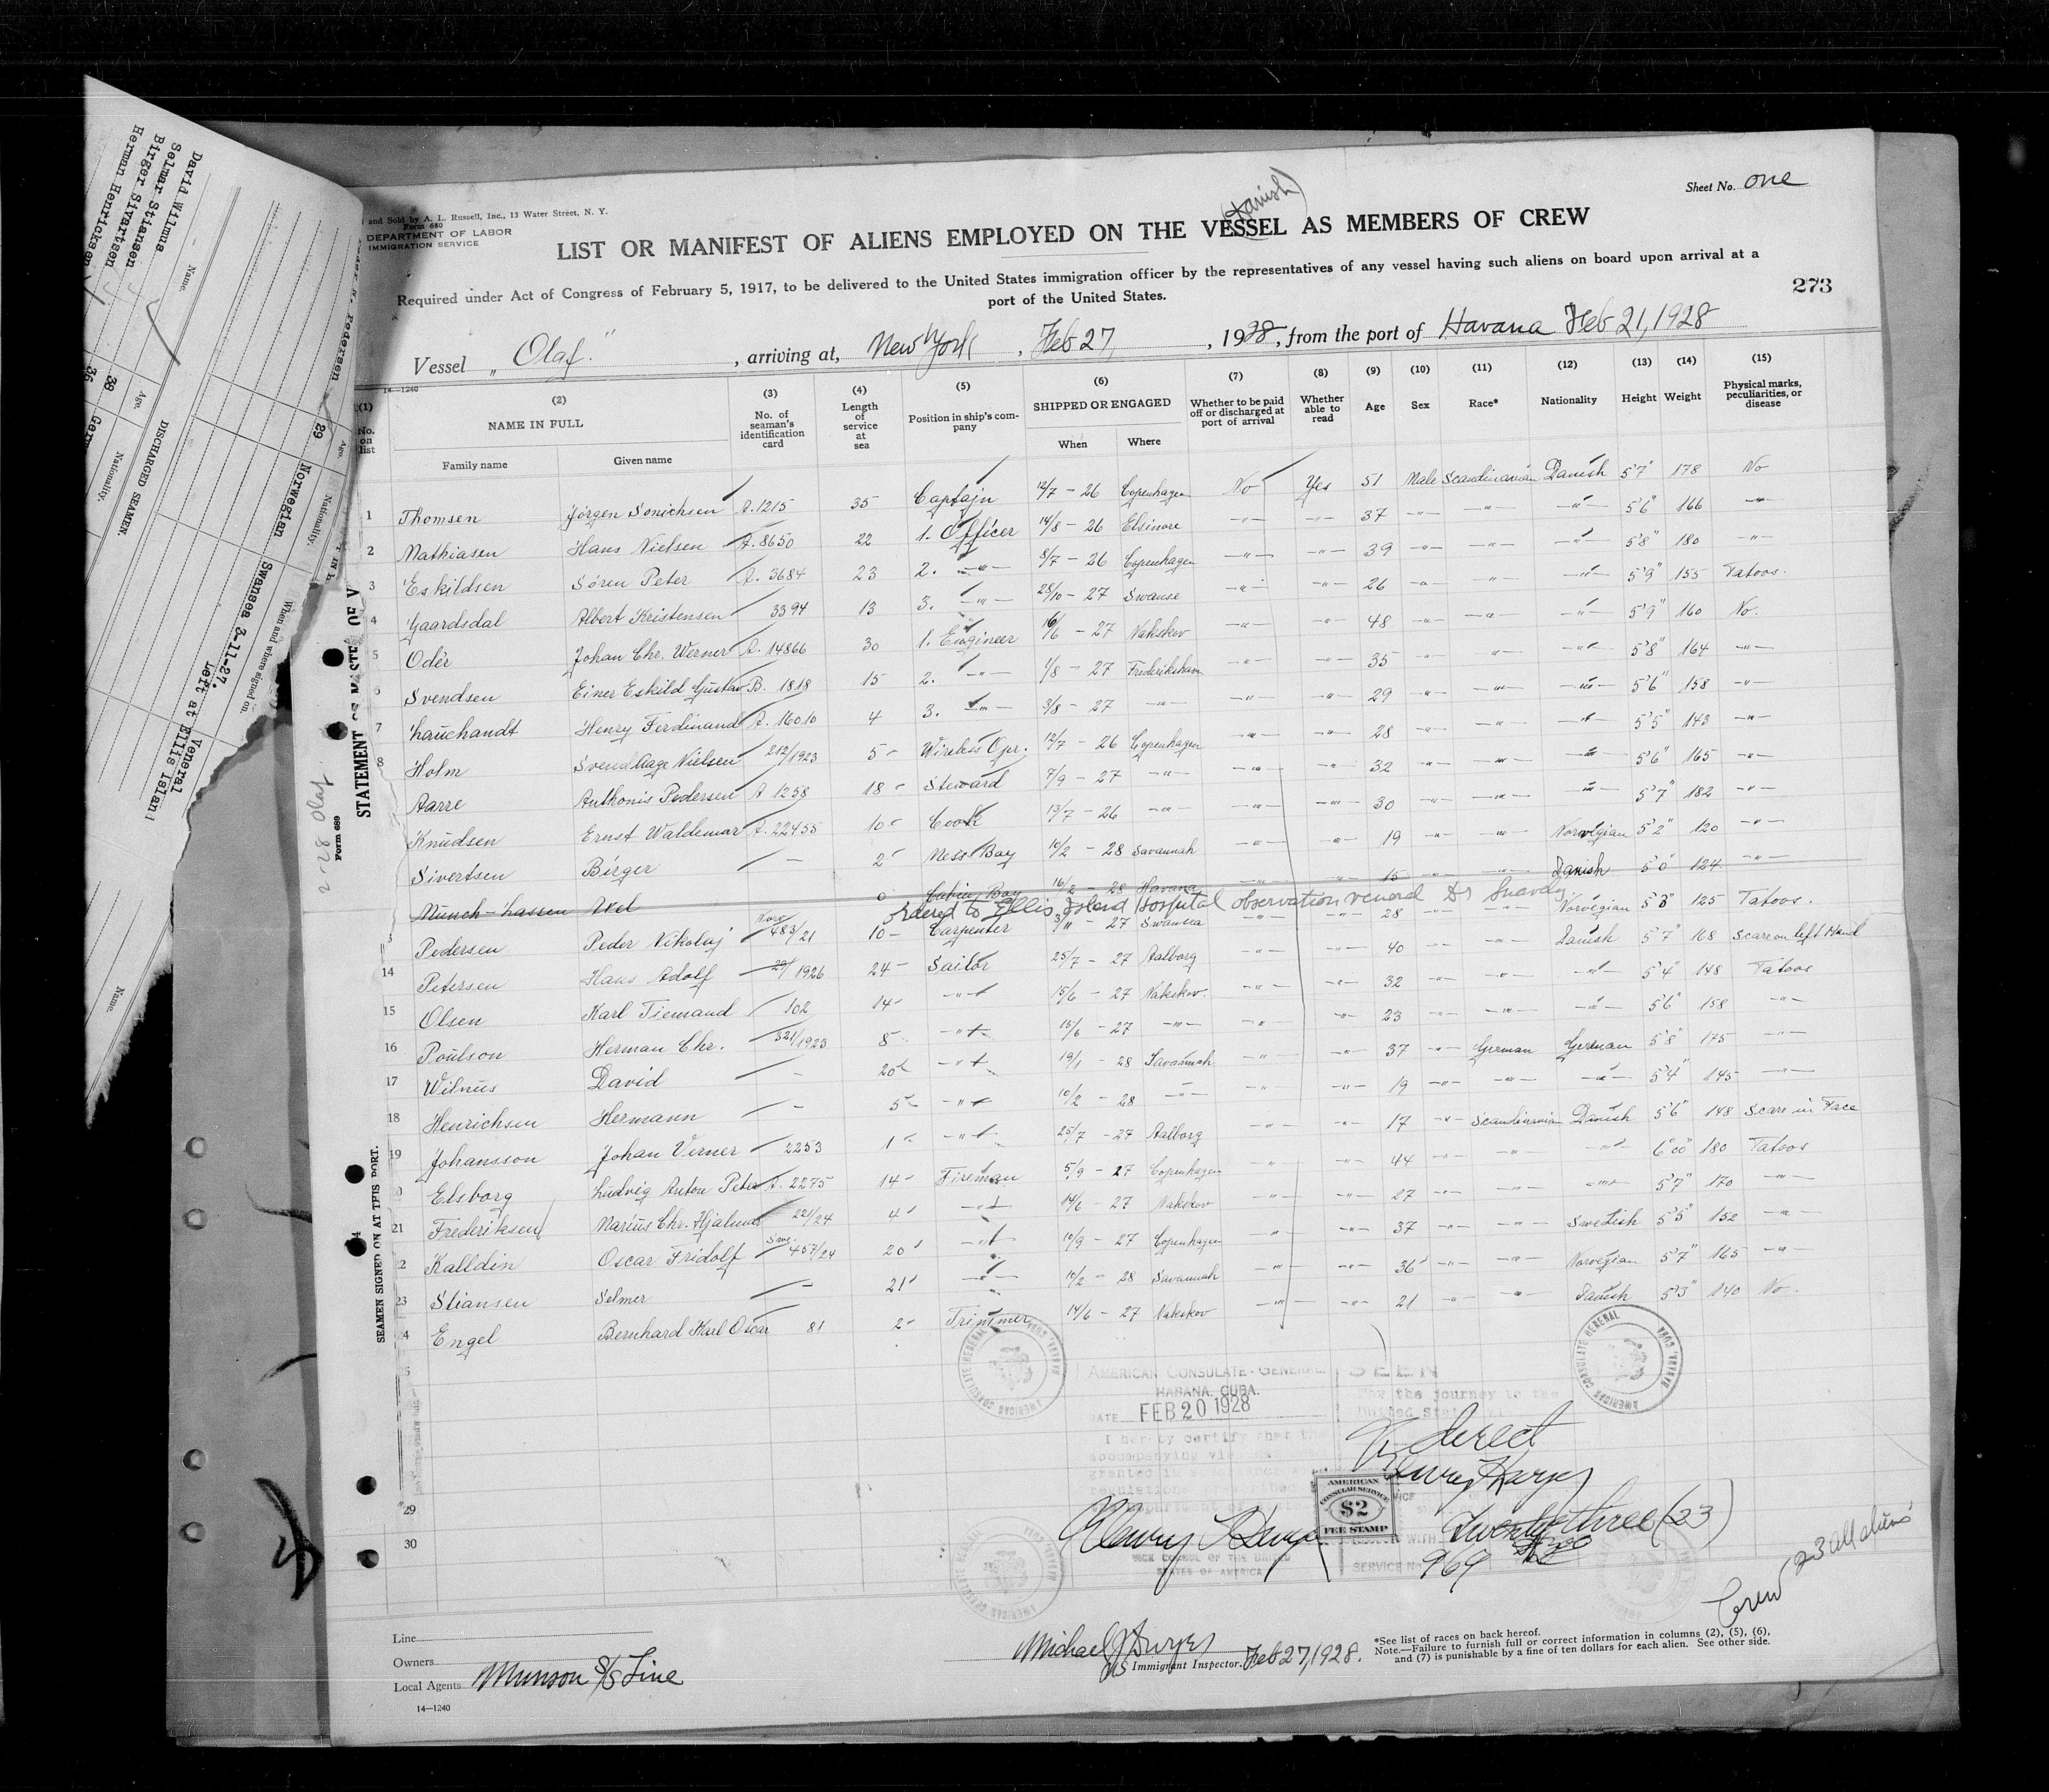 Sheet No. one
and Sold by A. L. Russell, Inc., 13 Water Street, N. Y.
Form 680
DEPARTMENT OF LABOR
IMMIGRATION SERVICE
(Danish)
LIST OR MANIFEST OF ALIENS EMPLOYED ON THE VESSEL AS MEMBERS OF CREW
Required under Act of Congress of February 5, 1917, to be delivered to the United States immigration officer by the representatives of any vessel having such aliens on board upon arrival at a
port of the United States.
273
Vessel "Olaf", arriving at, New York, Feb 27, 1928, from the port of Havana Feb 21, 1928
14—1240
(1) No. on list
(2) NAME IN FULL Family name Given name
(3) No. of seaman's identification card
(4) Length of service at sea
(5) Position in ship's company
(6) SHIPPED OR ENGAGED When Where
(7) Whether to be paid off or discharged at port of arrival
(8) Whether able to read
(9) Age
(10) Sex
(11) Race*
(12) Nationality
(13) Height
(14) Weight
(15) Physical marks, peculiarities, or disease
1 Thomsen Jörgen Sonichsen A.1215 35 Captajn 12/7 - 26 Copenhagen No Yes 51 Male Scandinavian Danish 5'7" 178 No
2 Mathiasen Hans Nielsen A.8650 22 1. Officer 14/8 - 26 Elsinore -"- -"- 37 -"- -"- -"- 5'6" 166 -"-
3 Eskildsen Sören Peter A. 3684 23 2. -"- 8/7 - 26 Copenhagen -"- -"- 39 -"- -"- -"- 5'8" 180 -"-
4 Gaardsdal Albert Kristensen 3394 13 3. -"- 28/10 - 27 Swanse -"- -"- 26 -"- -"- -"- 5'9" 155 Tatoos.
5 Odér Johan Chr. Werner A. 14866 30 1. Engineer 16/6 - 27 Nakskov -"- -"- 48 -"- -"- -"- 5'9" 160 No.
6 Svendsen Einer Eskild Gustav B. 1818 15 2. -"- 1/8 - 27 Frederikshavn -"- -"- 35 -"- -"- -"- 5'8" 164 -"-
7 Lauchandt Henry Ferdinand A. 16010 4 3. -"- 3/8 - 27 -"- -"- -"- 29 -"- -"- -"- 5'6" 158 -"-
8 Holm Svend Aage Nielsen 212/1923 5 Wireless Opr. 12/7 - 26 Copenhagen -"- -"- 28 -"- -"- -"- 5'5" 143 -"-
Aarre Anthonis Pedersen A 1258 18 Steward 7/9 - 27 -"- -"- -"- 32 -"- -"- -"- 5'6" 165 -"-
Knudsen Ernst Waldemar A. 22455 10 Cook 13/7 - 26 -"- -"- -"- 30 -"- -"- -"- 5'7" 182 -"-
Sivertsen Birger - 2 Mess Boy 10/2 - 28 Savannah -"- -"- 19 -"- -"- Norwegian 5'2" 120 -"-
Munch-Lassen Axel 0 Cabin Boy 16/2 - 28 Havana -"- -"- 15 -"- -"- Danish 5'0" 124 -"-
ordered to Ellis Island Hospital observation venereal Dr
Pedersen Peder Nikolaj Norv 483/21 10 Carpenter 3/11 - 27 Swansea -"- -"- 28 -"- -"- Norvegian 5'8" 125 Tatoos.
14 Petersen Hans Adolf 29/1926 24 Sailor 25/7 - 27 Aalborg -"- -"- 40 -"- -"- Danish 5'7" 168 Scare on left Hand
15 Olsen Karl Tiemand 102 14 -"- 15/6 - 27 Nakskov. -"- -"- 32 -"- -"- -"- 5'4" 148 Tatoos
16 Poulson Herman Chr. 321/1923 8 -"- 15/6 - 27 -"- -"- -"- 23 -"- -"- -"- 5'6" 158 -"-
17 Wilnus David - 20 -"- 19/1 - 28 Savannah -"- -"- 37 -"- German German 5'8" 175 -"-
18 Henrichsen Hermann - 5 -"- 10/2 - 28 -"- -"- -"- 19 -"- -"- -"- 5'4" 145 -"-
19 Johansson Johan Verner 2253 1 -"- 25/7 - 27 Aalborg -"- -"- 17 -"- Scandinavian Danish 5'6" 148 Scare in Face
Elsborg Ludvig Anton Peter A. 2275 14 Fireman 5/9 - 27 Copenhagen -"- -"- 44 -"- -"- -"- 6'00" 180 Tatoos
21 Frederiksen Marius Chr. Hjalmar 221/24 4 -"- 14/6 - 27 Nakskov -"- -"- 27 -"- -"- -"- 5'7" 170 -"-
Kalldin Oscar Fridolf 457/24 20 -"- 10/9 - 27 Copenhagen -"- -"- 37 -"- -"- Swedish 5'5" 152 -"-
23 Stiansen Selmer - 21 -"- 10/2 - 28 Savannah -"- -"- 36 -"- -"- Norvegian 5'7" 165 -"-
Engel Bernhard Karl Oscar 81 2 Trimmer 14/6 - 27 Nakskov -"- -"- 21 -"- -"- Danish 5'3" 140 No.
29
30
AMERICAN CONSULATE GENERAL HABANA, CUBA
AMERICAN CONSULATE-GENERAL
HABANA, CUBA.
DATE FEB 20 1928
I hereby certify that the
accompanying
SEEN
For the journey to the
United States
direct
AMERICAN CONSULAR SERVICE $2 FEE STAMP
Twenty three (23)
VICE CONSUL OF THE UNITED
STATES OF AMERICA
SERVICE No. 969
AMERICAN CONSULATE GENERAL HABANA, CUBA
Crew 23 all aliens
Line
Owners
Local Agents Munson S/S Line
14—1240
Michael J Dwyer
US Immigrant Inspector. Feb 27, 1928.
*See list of races on back hereof.
Note.—Failure to furnish full or correct information in columns (2), (5), (6),
and (7) is punishable by a fine of ten dollars for each alien. See other side.
David Wilmus
Selmar Stiansen
Birger Sivartsen
Herman Henricksen
Name.
Age.
38
36
Nationality.
DISCHARGED SEAMEN.
Name.
Pedersen
29
Age.
Norwegian
Nationality.
Swansea 3-11-27.
When and where signed on.
Venereal
Left at Ellis Island
2-28 Olaf
Form 689
STATEMENT OF MASTER OF V
SEAMEN SIGNED ON AT THIS PORT.